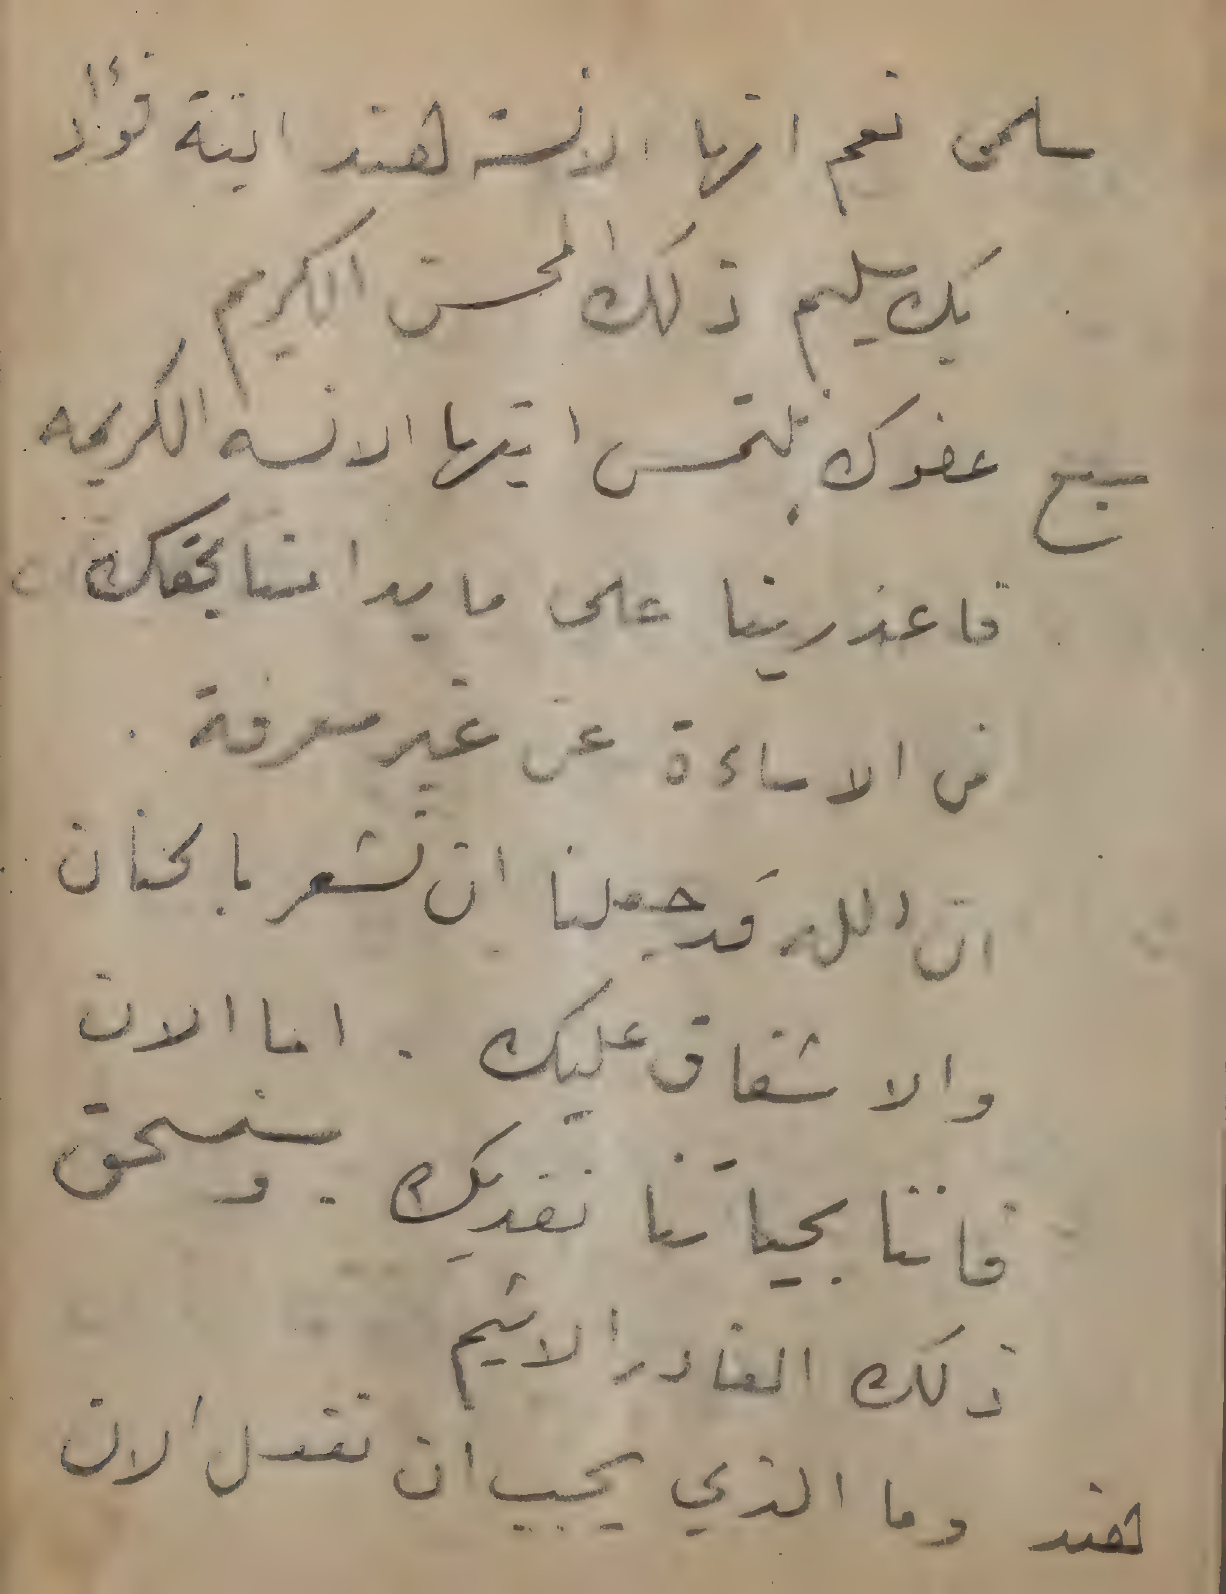 سلمى نعم انها الانسة هند ابنة فؤاد
بك سليم ذلك المحسن الكريم
سبع عفوك نلتمس ايتها الانسه الكريمه
فاعذرينا على ما بدا منا بحقك
من الاساءة عن غير معرفة .
ان الله قد جعلنا ان نشعر بالحنان
والاشفاق عليك . اما الان
فاننا بحياتنا نفديك . وسنسحق
ذلك الغادر الاثيم
هند وما الذي يجب ان نفعل الان